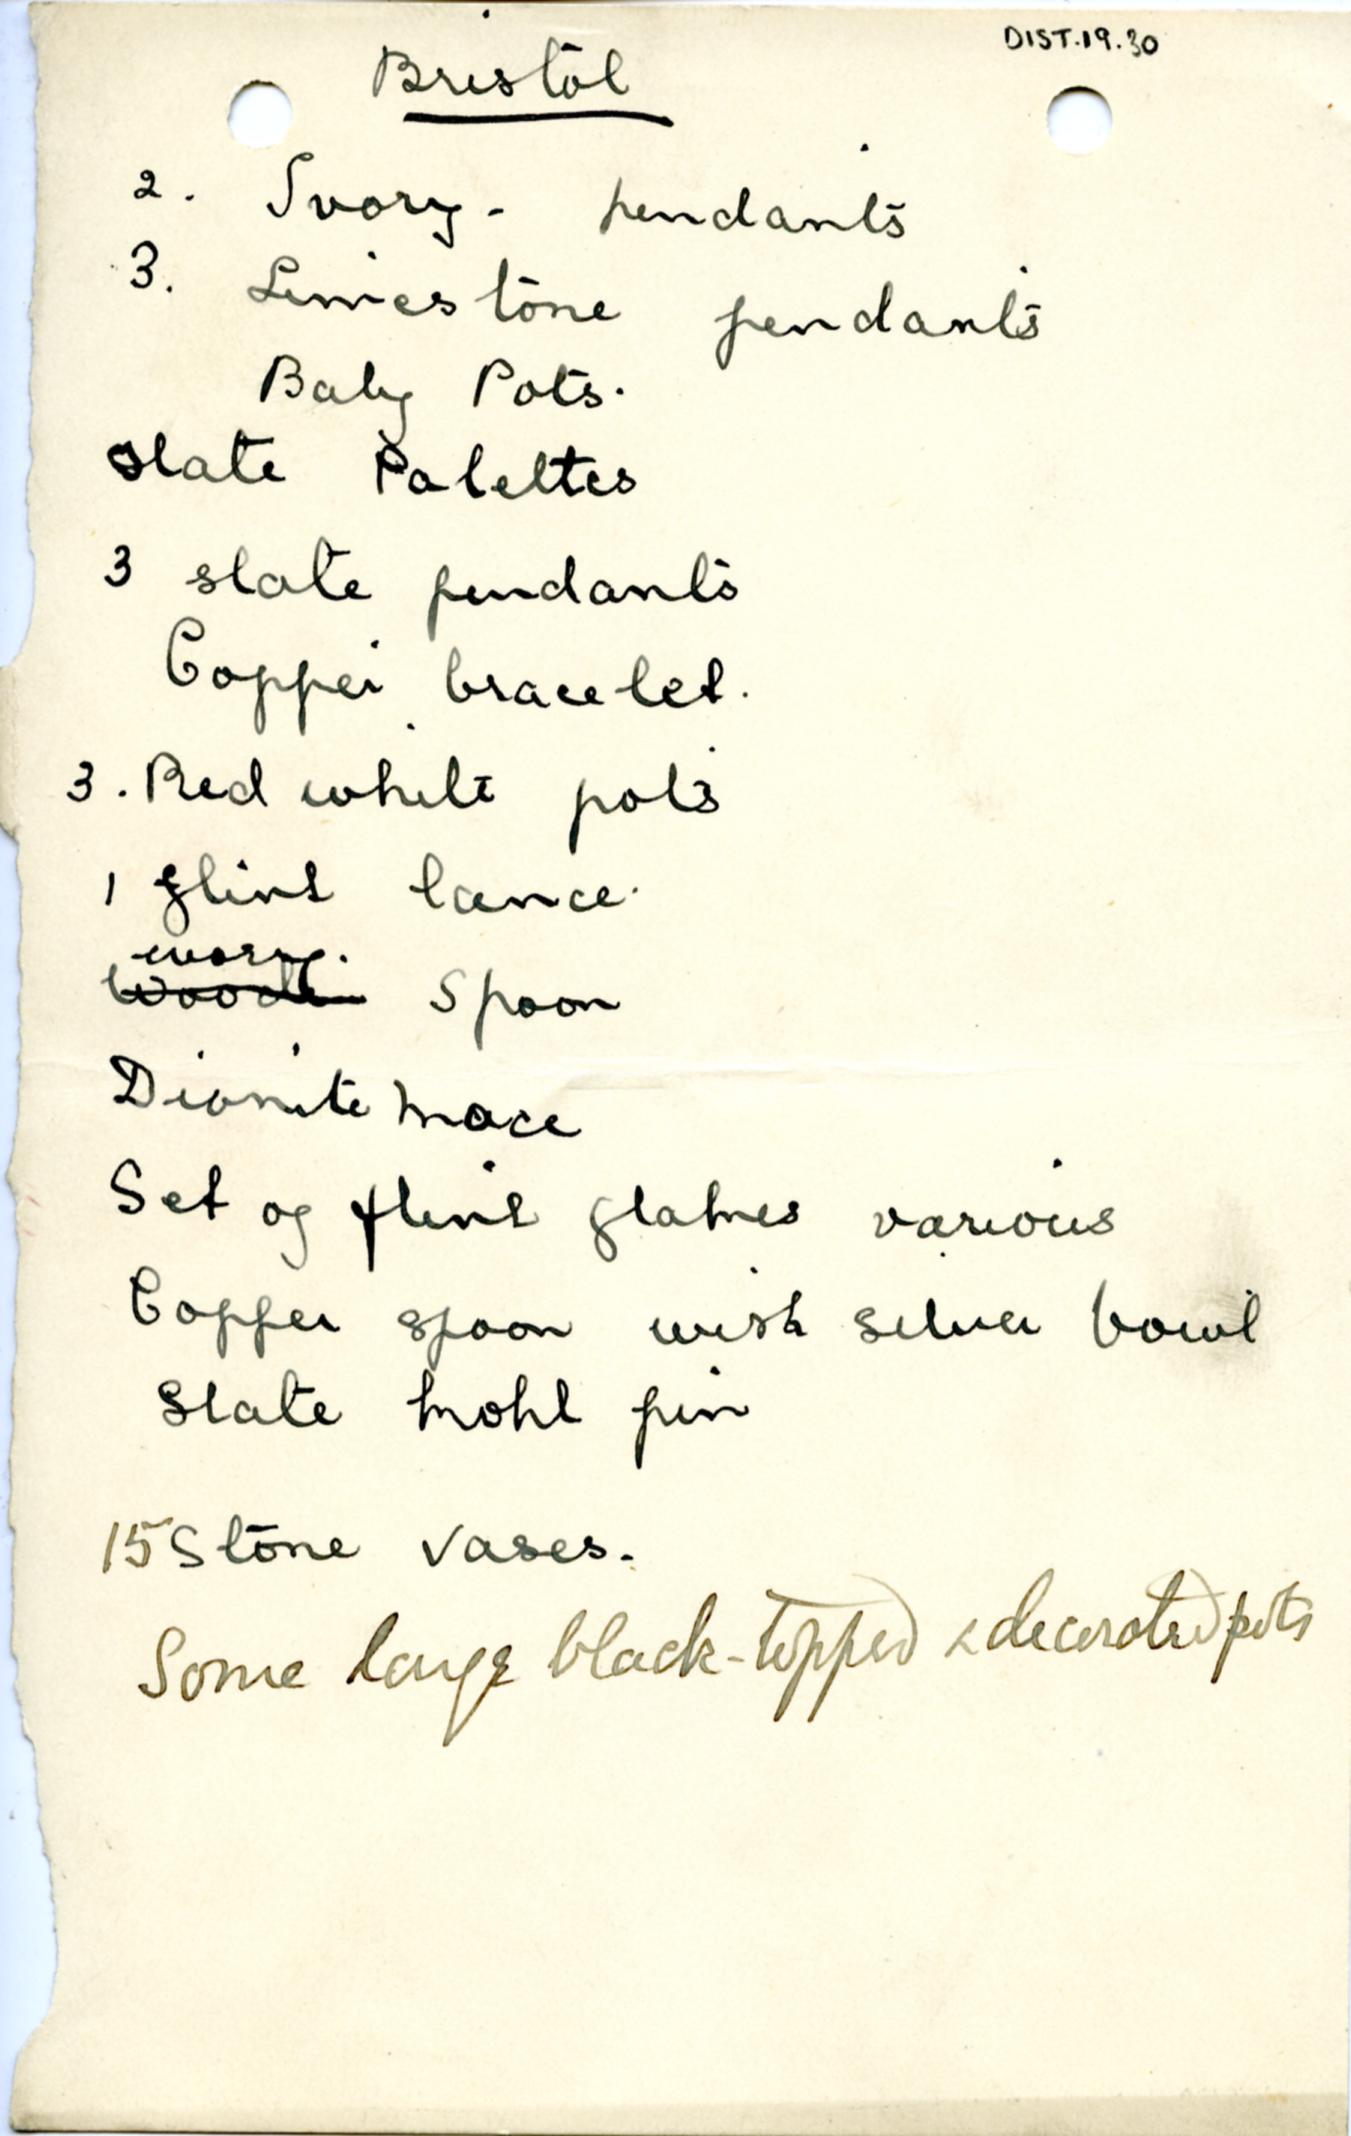 DIST.19.30
Bristol
2. Ivory - pendants
3. Limestone pendants
Baby Pots.
Slate Palettes
3 slate pendants
Copper bracelet.
3. Red white pots
1 flint lance.
ivory.
Wooden Spoon
Diorite mace
Set of flint flakes various
Copper spoon with silver bowl
Slate kohl pin
15 Stone vases.
Some large black-topped & decorated pots